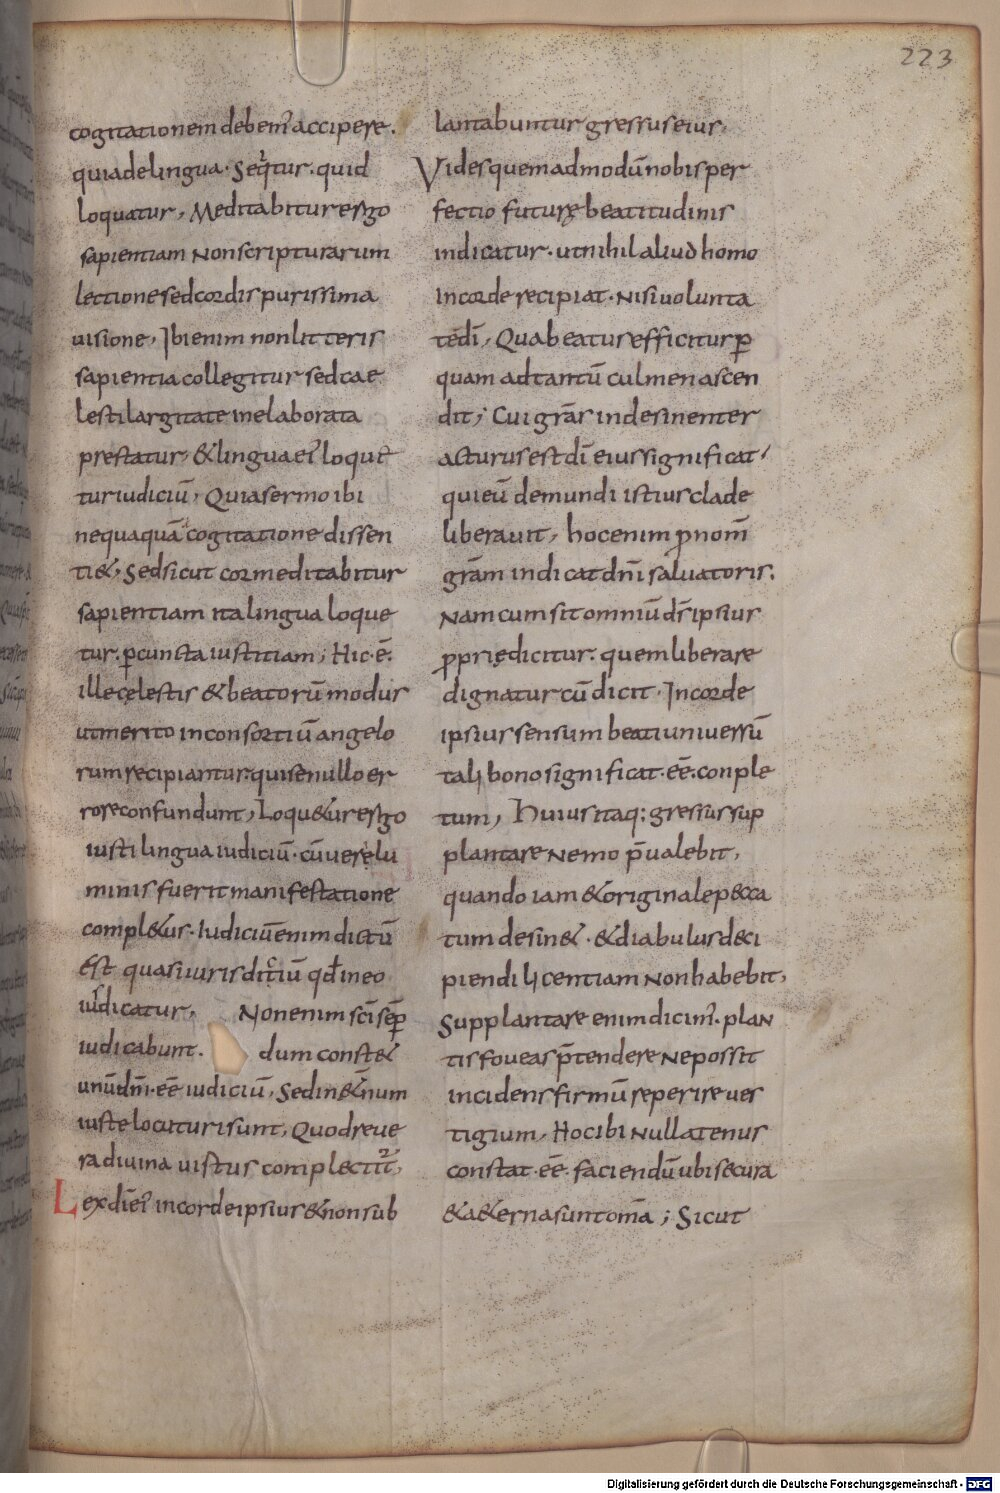 223
cogitationem debem᾽ accipere.
quia de lingua. Seqͥtur. quid
loquatur, Meditabitur ergo
sapientiam Non scripturarum
lectione sed cordis purissima
uisione, Ibi enim non litteris
sapientia collegitur sed cae
lesti largitate inelaborata
prestatur, & lingua ei᾽ loque
tur iudiciū, Quia sermo ibi
nequaquā cogitatione dissen
ti&, Sed sicut cor meditabitur
sapientiam ita lingua loque
tur. ꝑ cuncta iustitiam; Hic.ē.
ille cęlestis & beatorū modus
ut merito in consortiū angelo
rum recipiantur. qui se nullo er
rore confundunt, Loqu&ur ergo
iusti lingua iudiciū. cū uerę lu
minis fuerit manifestatione
compl&us. Iudiciū enim dictū
est quasi iuris dictiū qđ in eo
ius dicatur, Non enim sc̄i sēꝑ
iudicabunt. dum const&
unū dn̄i. eē iudiciū, Sed in &ͣnum
iuste locuturi sunt, Quod reue
ra diuina uirtus complectit᷑,
Lex dī ei᾽ in corde ipsius & non sub
lantabuntur gressus eius,
Vides quemadmodū nobis per
fectio futurę beatitudinis
indicatur. ut nihil aliud homo
in corde recipiat. Nisi uolunta
tē dī, Qua beatus efficitur ꝑ
quam ad tantū culmen ascen
dit; Cui grās indesinenter
acturus est dī eius significat,
qui eū de mundi istius clade
liberauit, hoc enim ꝓnom̄
grām indicat dn̄i saluatoris.
Nam cum sit omniū dr̄ ipsius
ꝓprię dicitur. quem liberare
dignatur cū dicit. In corde
ipsius sensum beati uniuersū
tali bono significat. eē. conple
tum, Huius itaq: gressus sup
plantare Nemo p̄ualebit,
quando iam & originale p&cca
tum desin&. & diabulus deci
piendi licentiam Non habebit,
Supplantare enim dicim᾽. plan
tis foueas p̄tendere Ne possit
incidens firmū reperire ues
tigium, Hoc ibi Nullatenus
constat. eē. faciendū ubi secura
& a&erna sunt om̄a; Sicut
Digitalisierung gefördert durch die Deutsche Forschungsgemeinschaft - DFG